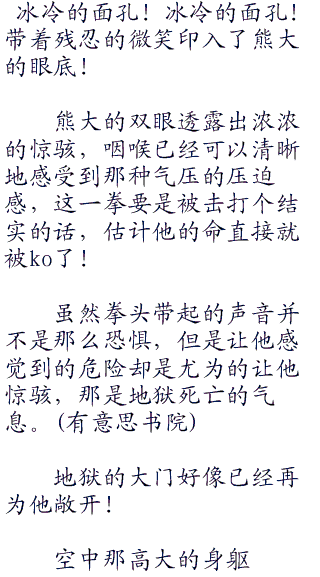 冰冷的面孔！冰冷的面孔！
带着残忍的微笑印入了熊大
的眼底！
熊大的双眼透露出浓浓
的惊骇，咽喉已经可以清晰
地感受到那种气压的压迫
感，这一拳要是被击打个结
实的话，估计他的命直接就
被ko了！
虽然拳头带起的声音并
不是那么恐惧，但是让他感
觉到的危险却是尤为的让他
惊骇，那是地狱死亡的气
息。(有意思书院)
地狱的大门好像已经再
为他敞开！
空中那高大的身躯